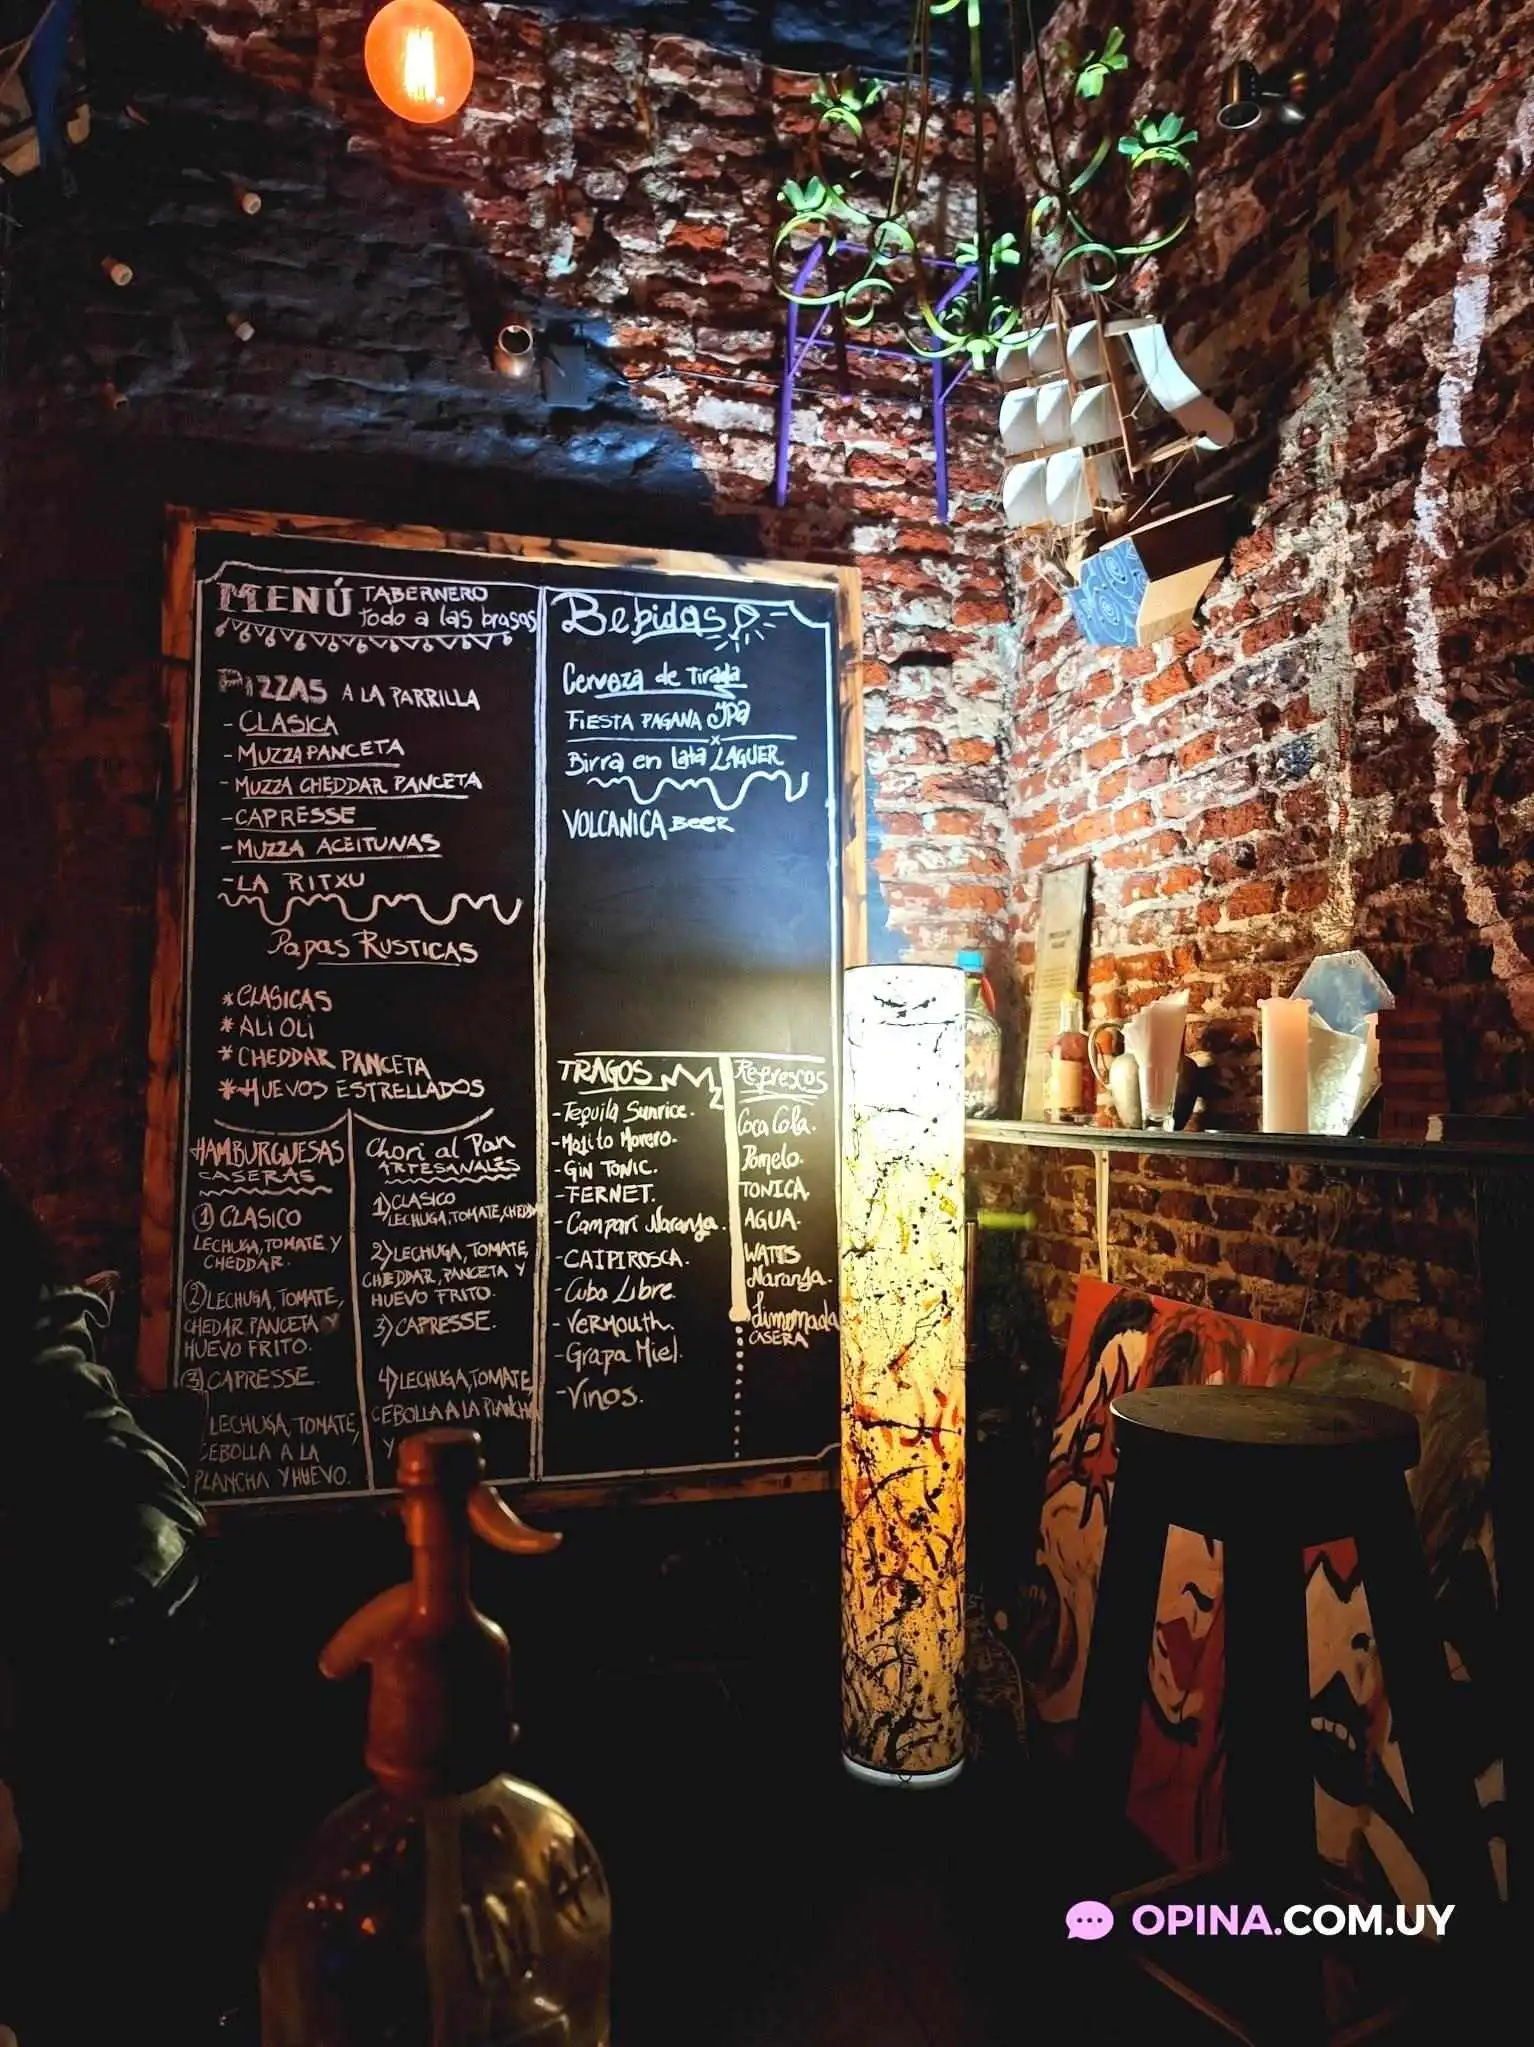 MENÚ TABERNERO
todo a las brasas
PIZZAS A LA PARRILLA
- CLASICA
- MUZZA PANCETA
- MUZZA CHEDDAR PANCETA
- CAPRESSE
- MUZZA ACEITUNAS
- LA RITXU
Papas RUSTICAS
* CLASICAS
* ALI OLI
* CHEDDAR PANCETA
* HUEVOS ESTRELLADOS
HAMBURGUESAS
CASERAS
1) CLASICO
LECHUGA, TOMATE Y
CHEDDAR.
2) LECHUGA, TOMATE,
CHEDAR PANCETA Y
HUEVO FRITO.
3) CAPRESSE.
LECHUGA, TOMATE,
CEBOLLA A LA
PLANCHA Y HUEVO.
Chori al Pan
ARTESANALES
1) CLASICO
LECHUGA, TOMATE, CHEDD
2) LECHUGA, TOMATE,
CHEDDAR, PANCETA Y
HUEVO FRITO.
3) CAPRESSE.
4) LECHUGA, TOMATE
CEBOLLA A LA PLANCHA
Y
Bebidas
Cerveza de Tirada
FIESTA PAGANA IPA
Birra en lata LAGUER
VOLCANICA BEER
TRAGOS
- Tequila Sunrice.
- Mojito Morero.
- GIN TONIC.
- FERNET.
- Campari Naranja.
- CAIPIROSCA.
- Cuba Libre.
- VERMOUTH.
- Grapa Miel.
- Vinos.
Refrescos
Coca Cola.
Pomelo.
TONICA.
AGUA.
WATTS
Naranja.
Limonada
CASERA
OPINA.COM.UY